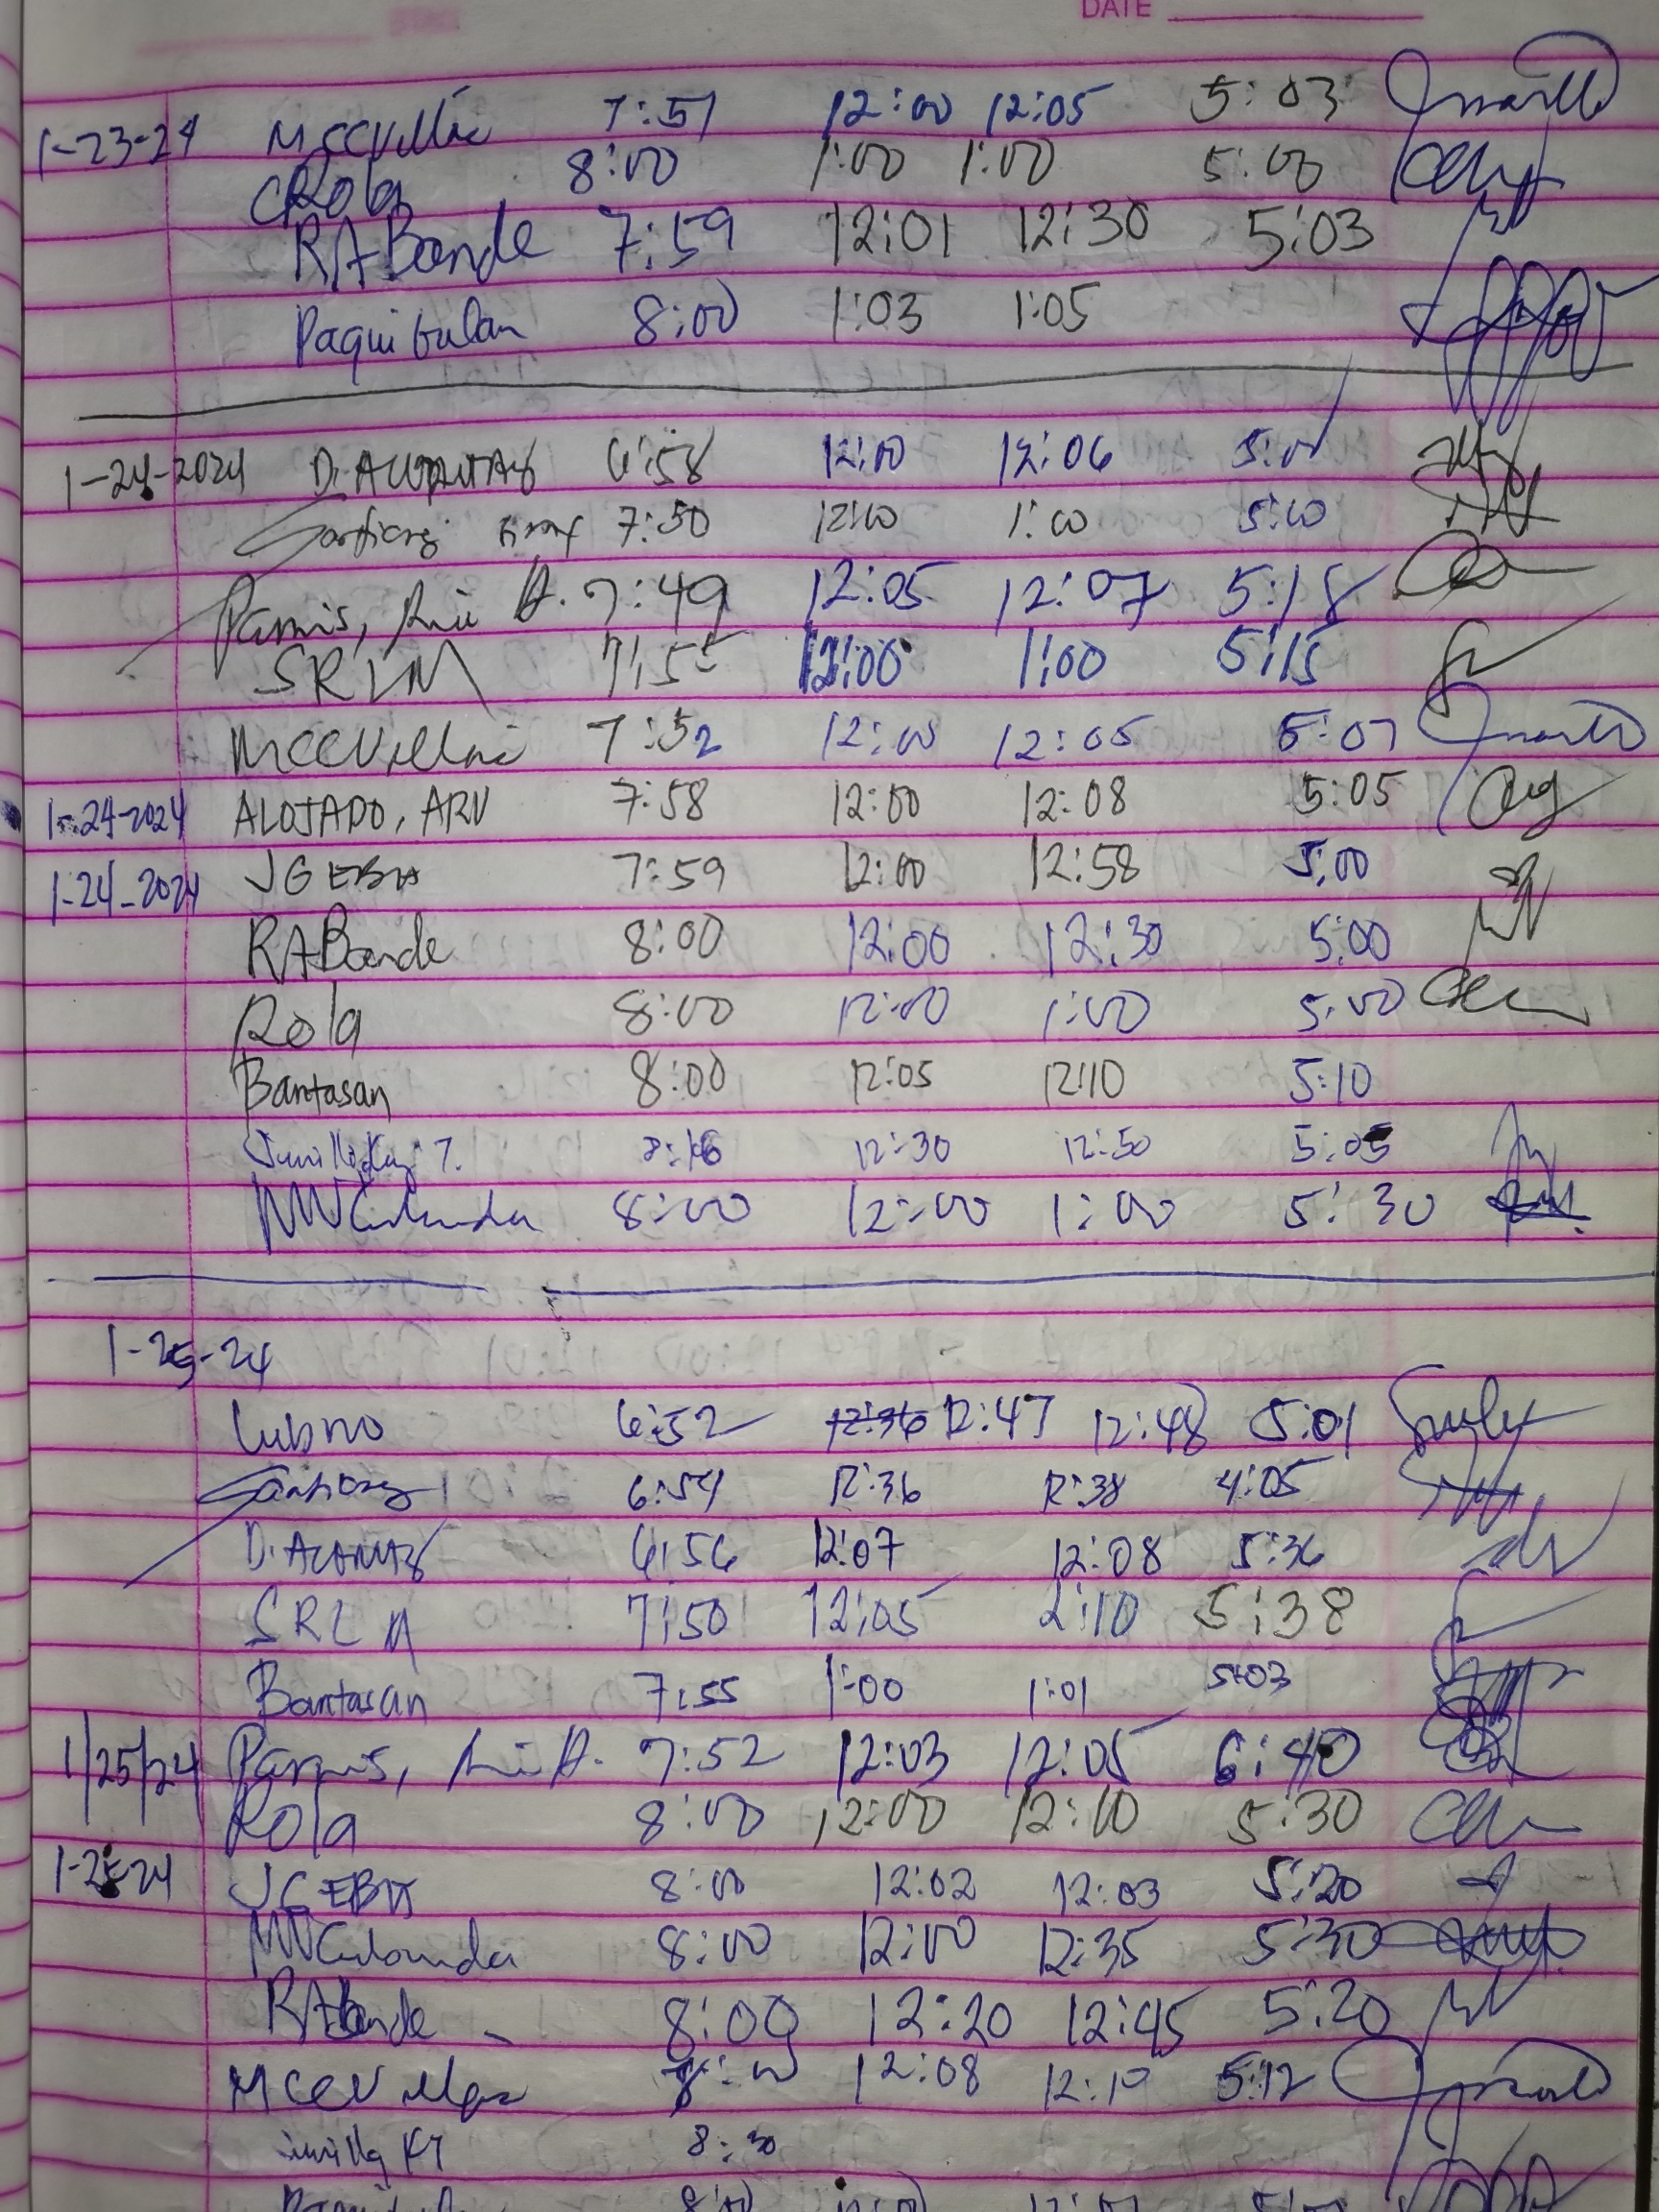 DATE
1-23-24 MCCVillas 7:51 12:00 12:05 5:03
CRola 8:00 1:00 1:00 5:00
RABande 7:59 12:01 12:30 5:03
Paquibulan 8:00 1:03 1:05
1-24-2024 D. 6:58 12:00 12:06 5:00
7:50 12:00 1:00 5:00
Parris, A. 7:49 12:05 12:07 5:18
SRLM 7:55 12:00 1:00 5:15
MCCVillas 7:52 12:00 12:05 5:07
1-24-2024 ALOJADO, ARV 7:58 12:00 12:08 5:05
1-24-2024 JGEBA 7:59 12:00 12:58 5:00
RABande 8:00 12:00 12:30 5:00
Rola 8:00 12:00 1:00 5:00
Bantasan 8:00 12:05 12:10 5:10
12:30 12:50 5:05
8:00 12:00 1:00 5:30
1-25-24
6:52 12:36 12:47 12:48 5:01
6:54 12:36 12:38 4:05
D. 6:56 12:07 12:08 5:36
7:50 12:05 2:10 5:38
Bantasan 7:55 1:00 1:01 5:03
1/25/24 Parris, A. 7:52 12:03 12:05 6:40
Rola 8:00 12:00 12:10 5:30
1-25-24 JGEBA 8:00 12:02 12:03 5:20
8:00 12:00 12:35 5:30
RABande 8:00 12:20 12:45 5:20
MCCVillas 8:00 12:08 12:10 5:12
8:30